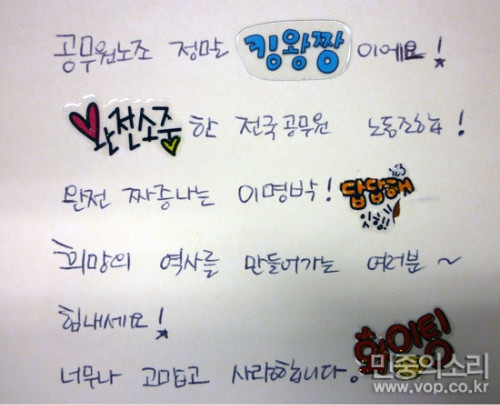 공무원노조 정말 킹왕짱 이에요!
완전소중 한 전국공무원 노동조합!
완전 짜증나는 이명박! 답답해
희망의 역사를 만들어가는 여러분~
힘내세요!
화이팅
너무나 고맙고 사랑합니다.
민중의소리
www.vop.co.kr